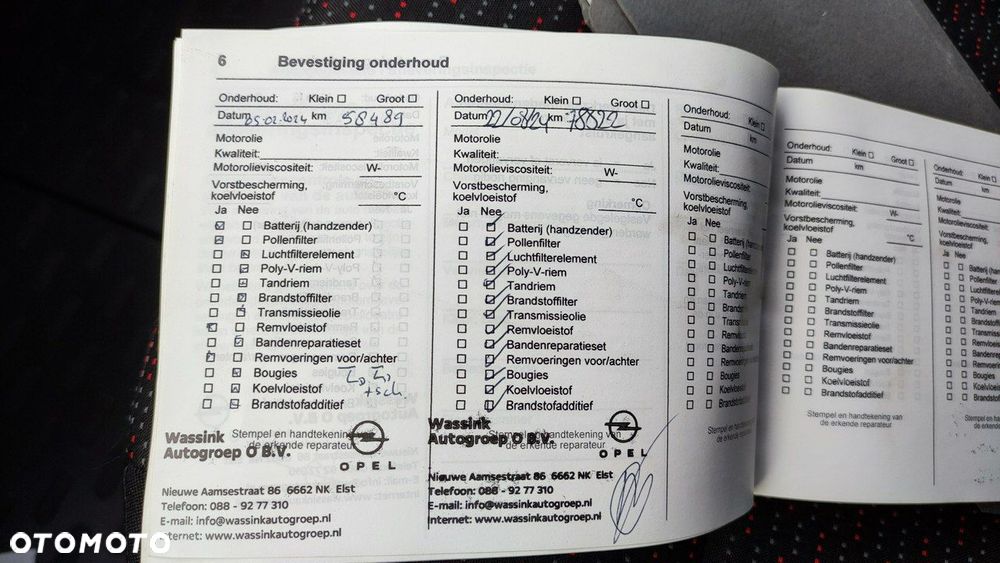 6 Bevestiging onderhoud
Onderhoud: Klein ☐ Groot ☐
Datum 25-02-2024 km 58489
Motorolie
Kwaliteit:
Motorolieviscositeit: W-
Vorstbescherming,
koelvloeistof °C
Ja Nee
Batterij (handzender)
Pollenfilter
Luchtfilterelement
Poly-V-riem
Tandriem
Brandstoffilter
Transmissieolie
Remvloeistof
Bandenreparatieset
Remvoeringen voor/achter
Bougies
Koelvloeistof +sch.
Brandstofadditief
Stempel en handtekening van
de erkende reparateur
Wassink
Autogroep O B.V.
OPEL
Nieuwe Aamsestraat 86 6662 NK Elst
Telefoon: 088 - 92 77 310
E-mail: info@wassinkautogroep.nl
Internet: www.wassinkautogroep.nl
Onderhoud: Klein ☐ Groot ☐
Datum 22/08/24 km 78822
Motorolie
Kwaliteit:
Motorolieviscositeit: W-
Vorstbescherming,
koelvloeistof °C
Ja Nee
Batterij (handzender)
Pollenfilter
Luchtfilterelement
Poly-V-riem
Tandriem
Brandstoffilter
Transmissieolie
Remvloeistof
Bandenreparatieset
Remvoeringen voor/achter
Bougies
Koelvloeistof
Brandstofadditief
Stempel en handtekening van
de erkende reparateur
Wassink
Autogroep O B.V.
OPEL
Nieuwe Aamsestraat 86 6662 NK Elst
Telefoon: 088 - 92 77 310
E-mail: info@wassinkautogroep.nl
Internet: www.wassinkautogroep.nl
Onderhoud: Klein ☐
Datum km
Motorolie
Kwaliteit:
Motorolieviscositeit:
Vorstbescherming,
koelvloeistof
Ja Nee
Batterij (handzender)
Pollenfilter
Luchtfilterelement
Poly-V-riem
Tandriem
Brandstoffilter
Remvloeistof
Remvoeringen
Bougies
Koelvloeistof
Brandstofadditief
Stempel en handtekening
de erkende reparateur
Onderhoud: Klein ☐ Groot ☐
Datum km
Motorolie
Kwaliteit:
Motorolieviscositeit: W-
Vorstbescherming,
koelvloeistof °C
Ja Nee
Batterij (handzender)
Pollenfilter
Luchtfilterelement
Poly-V-riem
Tandriem
Brandstoffilter
Transmissieolie
Remvloeistof
Bandenreparatieset
Remvoeringen voor/achter
Bougies
Koelvloeistof
Brandstofadditief
Stempel en handtekening van
de erkende reparateur
Onderhoud:
Datum
Motorolie
Kwaliteit:
Motorolieviscositeit:
Vorstbescherming,
koelvloeistof
Ja Nee
Batterij
Pollenfilter
Poly-V-riem
Tandriem
Brandstoffilter
Remvloeistof
Bougies
Koelvloeistof
OTOMOTO